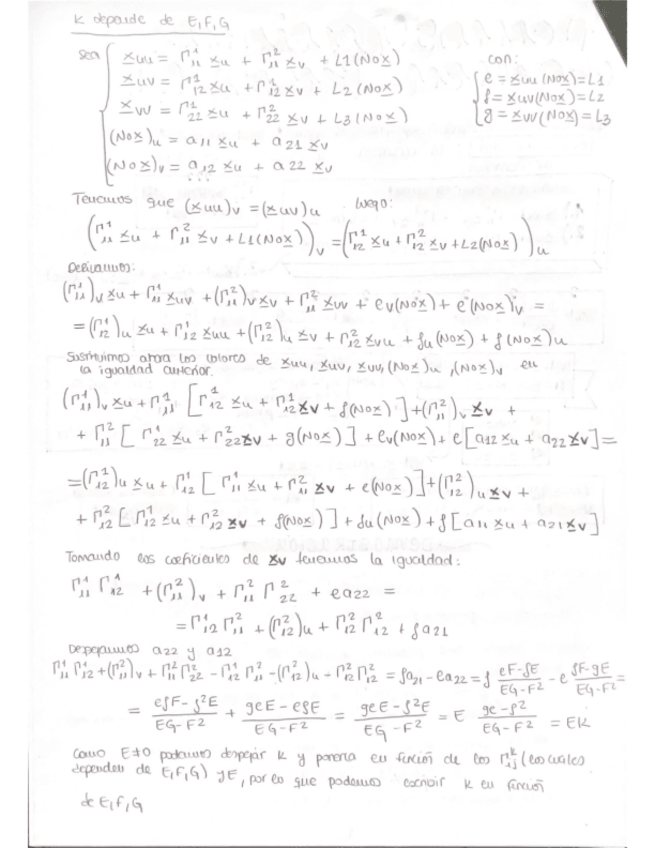 K depende de E,F,G
sea { x̲uu = Γ¹₁₁ x̲u + Γ²₁₁ x̲v + L1(N∘x̲)
x̲uv = Γ¹₁₂ x̲u + Γ²₁₂ x̲v + L2(N∘x̲)
x̲vv = Γ¹₂₂ x̲u + Γ²₂₂ x̲v + L3(N∘x̲)
(N∘x̲)u = a11 x̲u + a21 x̲v
(N∘x̲)v = a12 x̲u + a22 x̲v
con:
{ e = x̲uu(N∘x̲) = L1
f = x̲uv(N∘x̲) = L2
g = x̲vv(N∘x̲) = L3
Tenemos que (x̲uu)v = (x̲uv)u luego:
(Γ¹₁₁ x̲u + Γ²₁₁ x̲v + L1(N∘x̲))v = (Γ¹₁₂ x̲u + Γ²₁₂ x̲v + L2(N∘x̲))u
Derivamos:
(Γ¹₁₁)v x̲u + Γ¹₁₁ x̲uv + (Γ²₁₁)v x̲v + Γ²₁₁ x̲vv + ev(N∘x̲) + e(N∘x̲)v =
= (Γ¹₁₂)u x̲u + Γ¹₁₂ x̲uu + (Γ²₁₂)u x̲v + Γ²₁₂ x̲vu + fu(N∘x̲) + f(N∘x̲)u
Sustituimos ahora los valores de x̲uu, x̲uv, x̲vv, (N∘x̲)u, (N∘x̲)v en
la igualdad anterior.
(Γ¹₁₁)v x̲u + Γ¹₁₁ [Γ¹₁₂ x̲u + Γ¹₁₂ x̲v + f(N∘x̲)] + (Γ²₁₁)v x̲v +
+ Γ²₁₁ [Γ¹₂₂ x̲u + Γ²₂₂ x̲v + g(N∘x̲)] + ev(N∘x̲) + e[a12 x̲u + a22 x̲v] =
= (Γ¹₁₂)u x̲u + Γ¹₁₂ [Γ¹₁₁ x̲u + Γ²₁₁ x̲v + e(N∘x̲)] + (Γ²₁₂)u x̲v +
+ Γ²₁₂ [Γ¹₁₂ x̲u + Γ²₁₂ x̲v + f(N∘x̲)] + fu(N∘x̲) + f[a11 x̲u + a21 x̲v]
Tomando los coeficientes de x̲v tenemos la igualdad:
Γ¹₁₁ Γ¹₁₂ + (Γ²₁₁)v + Γ²₁₁ Γ²₂₂ + ea22 =
= Γ¹₁₂ Γ²₁₁ + (Γ²₁₂)u + Γ²₁₂ Γ²₁₂ + fa21
Despejamos a22 y a12
Γ¹₁₁ Γ¹₁₂ + (Γ²₁₁)v + Γ²₁₁ Γ²₂₂ - Γ¹₁₂ Γ²₁₁ - (Γ²₁₂)u - Γ²₁₂ Γ²₁₂ = fa21 - ea22 = f (eF-fE)/(EG-F²) - e (fF-gE)/(EG-F²) =
= (efF-f²E)/(EG-F²) + (geE-efE)/(EG-F²) = (geE-f²E)/(EG-F²) = E (ge-f²)/(EG-F²) = EK
Como E≠0 podemos despejar K y ponerla en función de los Γᵏᵢⱼ (los cuales
dependen de E,F,G) y E, por lo que podemos escribir K en función
de E,F,G